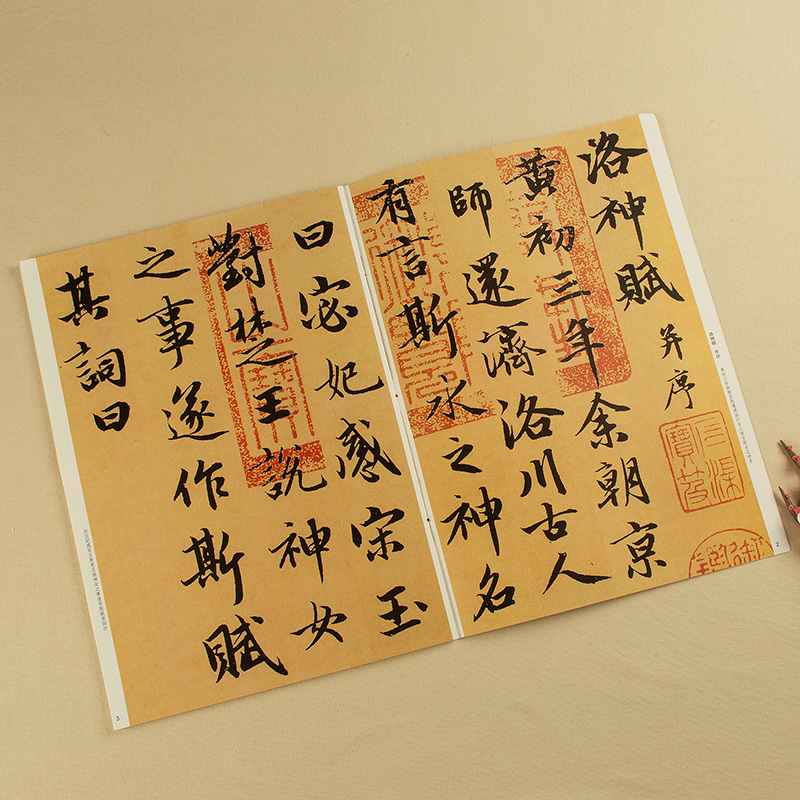 洛神賦并序
黃初三年余朝京
師還濟洛川古人
有言斯水之神名
2
曰宓妃感宋玉
對楚王說神女
之事遂作斯賦
其詞曰
3